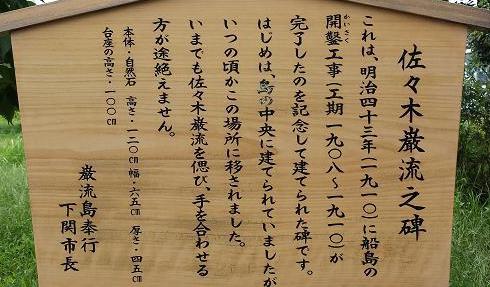 佐々木巌流之碑
これは、明治四十三年(一九一〇)に船島の
かいさく
開鑿工事(工期一九〇八～一九一〇)が
完了したのを記念して建てられた碑です。
はじめは、島の中央に建てられていましたが
いつの頃かこの場所に移されました。
いまでも佐々木巌流を偲び、手を合わせる
方が途絶えません。
本体・自然石 高さ・一二〇㎝ 幅・六五㎝ 厚さ・四五㎝
台座の高さ・一〇〇㎝
巌流島奉行
下関市長